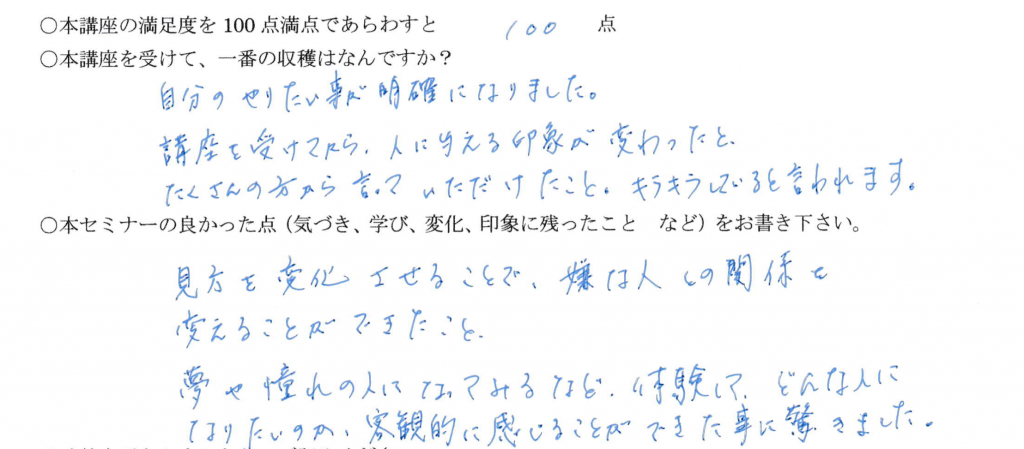 ○本講座の満足度を100点満点であらわすと 100 点
○本講座を受けて、一番の収穫はなんですか？
自分のやりたい事が明確になりました。
講座を受けてから、人に与える印象が変わったと、
たくさんの方から言っていただけたこと。キラキラしていると言われます。
○本セミナーの良かった点（気づき、学び、変化、印象に残ったこと　など）をお書き下さい。
見方を変化させることで、嫌な人との関係を
変えることができたこと、
夢や憧れの人になってみるなど、体験して、どんな人に
なりたいのか、客観的に感じることができた事に驚きました。